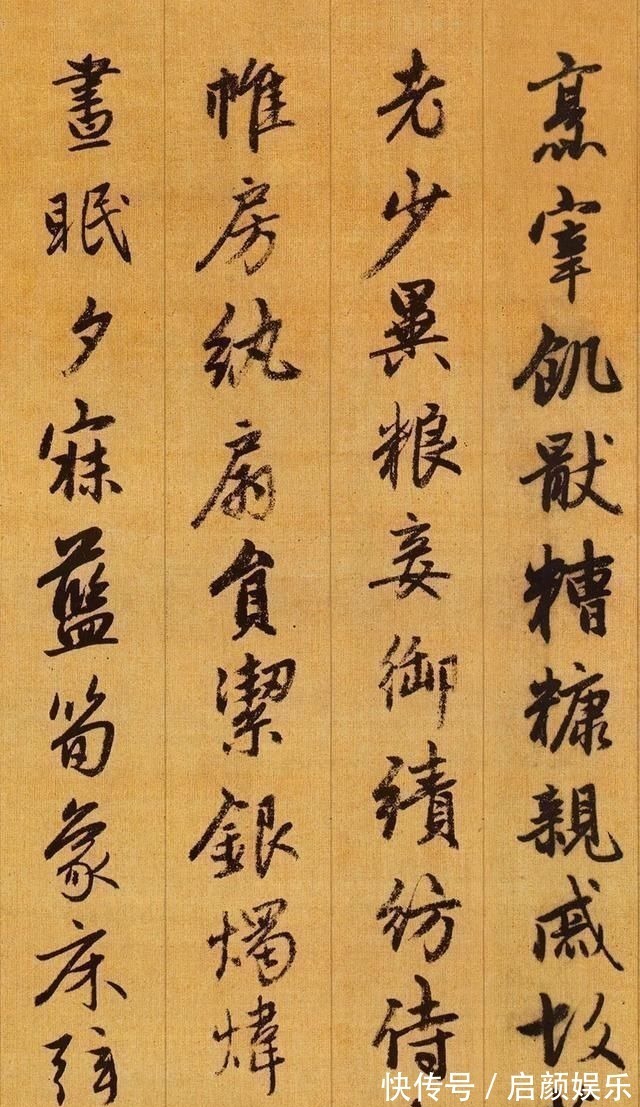 烹宰飢猒糟糠親戚故
老少異粮妾御績紡侍
帷房紈扇員潔銀燭煒
晝眠夕寐藍筍象床弦
快传号／启颜娱乐